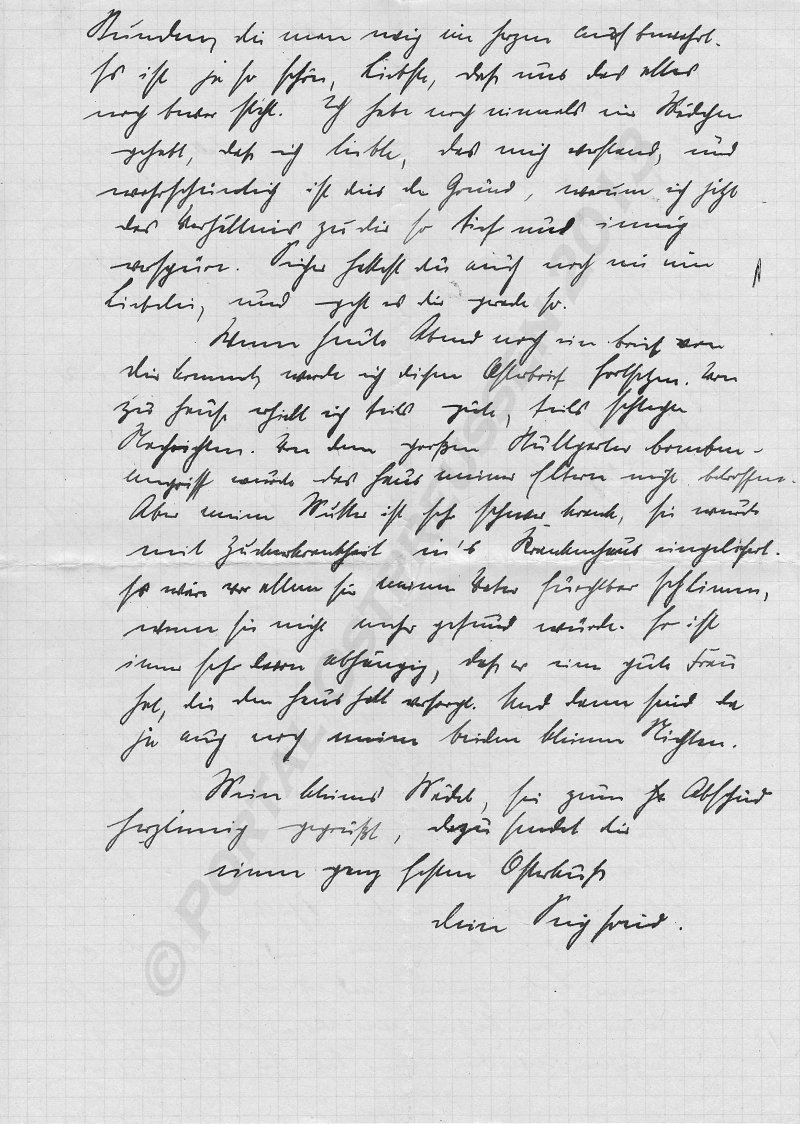 Stunden, die man ewig im Herzen aufbewahrt.
Es ist ja so schön, Liebste, daß uns das alles
noch bevor steht. Ich habe noch niemals ein Mädchen
gehabt, daß ich liebte, das mich verstand, und
wahrscheinlich ist dies der Grund, warum ich jetzt
das Verhältnis zu dir so tief und innig
verspüre. Sicher hattest du auch noch nie eine
Liebelei, und geht es dir gerade so.
Wenn heute Abend noch ein Brief von
dir kommt, werde ich diesen Osterbrief fortsetzen. Von
zu Hause erhielt ich teils gute, teils schlechte
Nachrichten. Von dem großen Stuttgarter Bomben-
angriff wurde das Haus meiner Eltern nicht betroffen.
Aber meine Mutter ist sehr schwer krank, sie wurde
mit Zuckerkrankheit in's Krankenhaus eingeliefert.
Es wäre vor allem für meinen Vater furchtbar schlimm,
wenn sie nicht mehr gesund würde. Er ist
immer sehr davon abhängig, daß er eine gute Frau
hat, die den Haushalt versorgt. Und dann sind da
ja auch noch meine beiden kleinen Nichten.
Mein kleines Mädel, sei zum Abschied
herzinnig gegrüßt, dazu sendet dir
einen ganz festen Osterkuß
dein Siegfried.
© PORTAL OSTPREUSSEN 2013